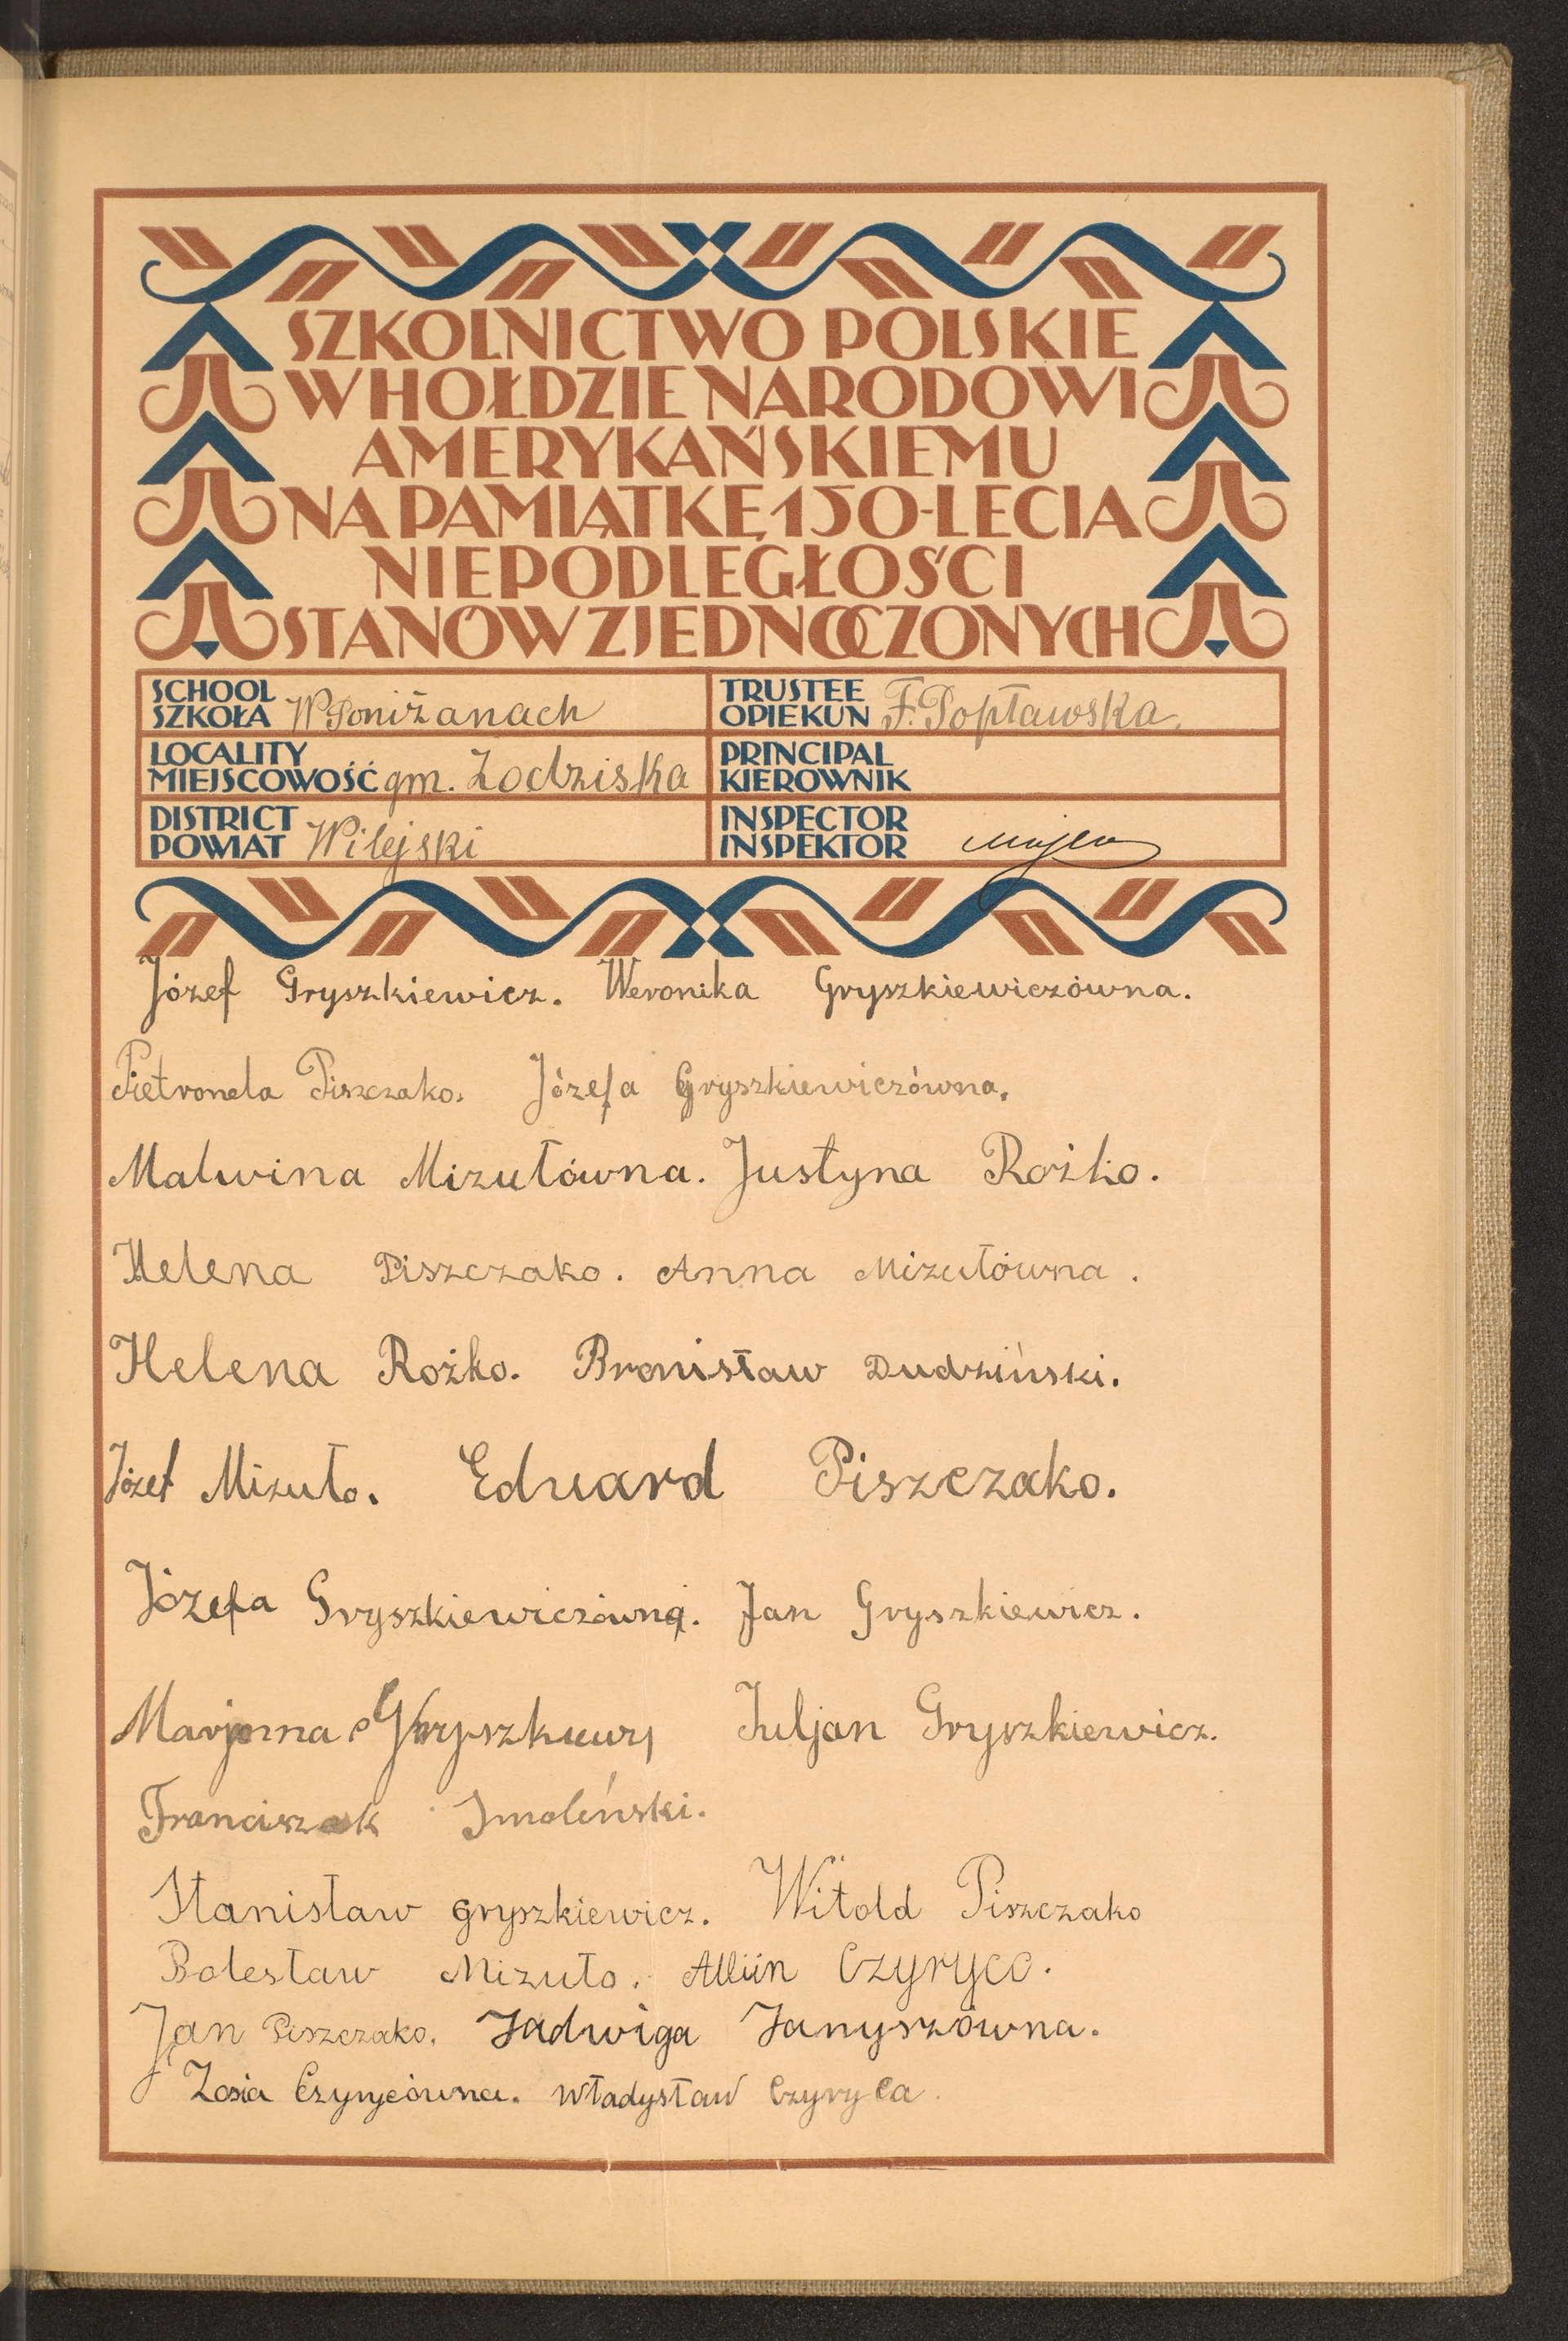 SZKOLNICTWO POLSKIE
W HOŁDZIE NARODOWI
AMERYKAŃSKIEMU
NA PAMIĄTKĘ 150-LECIA
NIEPODLEGŁOŚCI
STANÓW ZJEDNOCZONYCH
SCHOOL
SZKOŁA W Poniżanach
TRUSTEE
OPIEKUN F. Popławska.
LOCALITY
MIEJSCOWOŚĆ gm. Żodziska
PRINCIPAL
KIEROWNIK
DISTRICT
POWIAT Wilejski
INSPECTOR
INSPEKTOR
Józef Gryszkiewicz. Weronika Gryszkiewiczówna.
Pietronela Piszczako. Józefa Gryszkiewiczówna.
Malwina Mizułówna. Justyna Rożko.
Helena Piszczako. Anna Mizułówna.
Helena Rożko. Bronisław Dudziński.
Józef Mizuło. Eduard Piszczako.
Józefa Gryszkiewiczówna. Jan Gryszkiewicz.
Marjanna Juljan Gryszkiewicz.
Franciszek Smoleński.
Stanisław Gryszkiewicz. Witold Piszczako
Bolesław Mizuło. Czyryco.
Jan Piszczako. Jadwiga Janyszówna.
Zosia Czyrycówna. Władysław Czyryca.